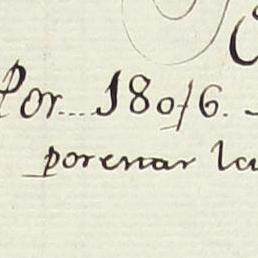 Por....180/6.
porenar la